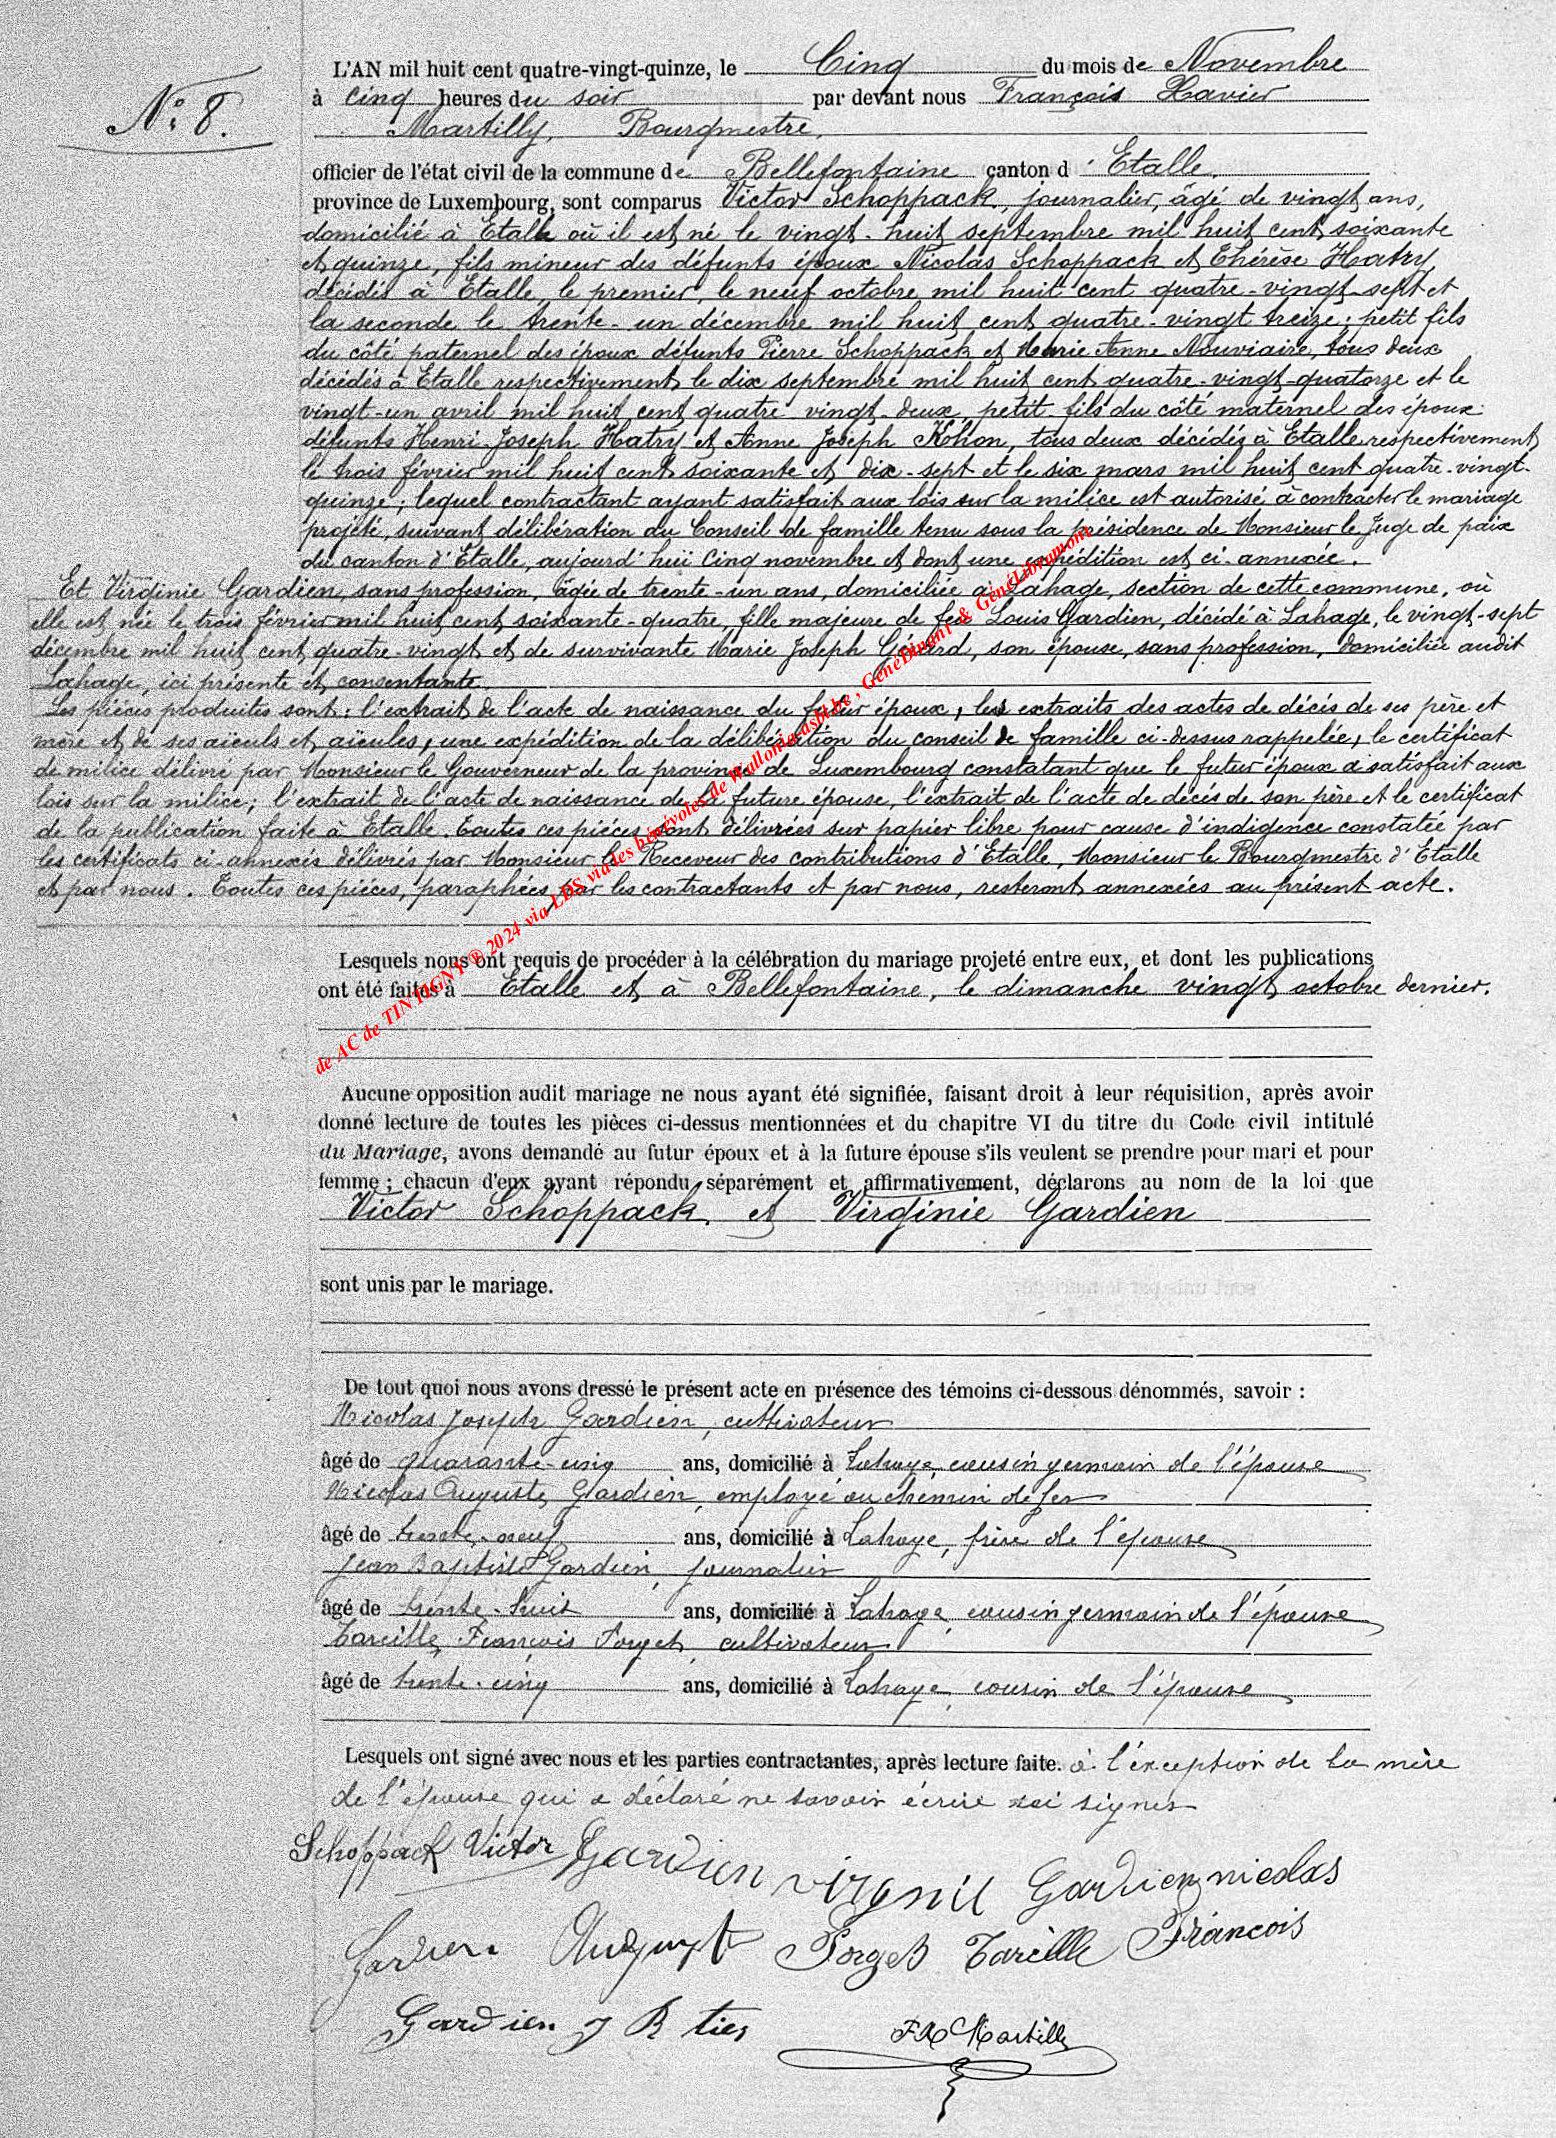 N.º 8.
L'AN mil huit cent quatre-vingt-quinze, le Cinq du mois de Novembre
à cinq heures du soir par devant nous François Xavier
Martilly, Bourgmestre,
officier de l'état civil de la commune de Bellefontaine canton d'Etalle,
province de Luxembourg, sont comparus Victor Schoppack, journalier, âgé de vingt ans,
domicilié à Etalle où il est né le vingt-huit septembre mil huit cent soixante
et quinze, fils mineur des défunts époux Nicolas Schoppack et Thérèse Hatry
décédés à Etalle, le premier, le neuf octobre mil huit cent quatre-vingt-sept et
la seconde le trente-un décembre mil huit cent quatre-vingt treize; petit fils
du côté paternel des époux défunts Pierre Schoppack et Marie Anne Nouviaire, tous deux
décédés à Etalle respectivement le dix septembre mil huit cent quatre-vingt-quatorze et le
vingt-un avril mil huit cent quatre-vingt-deux, petit-fils du côté maternel des époux
défunts Henri-Joseph Hatry et Anne Joseph Kohon, tous deux décédés à Etalle respectivement
le trois février mil huit cent soixante et dix-sept et le six mars mil huit cent quatre-vingt-
quinze; lequel contractant ayant satisfait aux lois sur la milice est autorisé à contracter le mariage
projeté, suivant délibération du Conseil de famille tenu sous la présidence de Monsieur le Juge de paix
du canton d'Etalle, aujourd'hui cinq novembre et dont une expédition est ci-annexée.
Et Virginie Gardien, sans profession, âgée de trente-un ans, domiciliée à Lahage, section de cette commune, où
elle est née le trois février mil huit cent soixante-quatre, fille majeure de feu Louis Gardien, décédé à Lahage, le vingt-sept
décembre mil huit cent quatre-vingt et de survivante Marie Joseph Gérard, son épouse, sans profession, domiciliée audit
Lahage, ici présente et consentante.
Les pièces produites sont: l'extrait de l'acte de naissance du futur époux, les extraits des actes de décès de ses père et
mère et de ses aïeuls et aïeules, une expédition de la délibération du conseil de famille ci-dessus rappelée, le certificat
de milice délivré par Monsieur le Gouverneur de la province de Luxembourg constatant que le futur époux a satisfait aux
lois sur la milice; l'extrait de l'acte de naissance de la future épouse, l'extrait de l'acte de décès de son père et le certificat
de la publication faite à Etalle. Toutes ces pièces sont délivrées sur papier libre pour cause d'indigence constatée par
les certificats ci-annexés délivrés par Monsieur le Receveur des contributions d'Etalle, Monsieur le Bourgmestre d'Etalle
et par nous. Toutes ces pièces, paraphées par les contractants et par nous, resteront annexées au présent acte.
de AC de TINTIGNY ® 2024 via LDS via les bénévoles de Wallonia-asbl.be, GénéDinant & GénéLibramont
Lesquels nous ont requis de procéder à la célébration du mariage projeté entre eux, et dont les publications
ont été faites à Etalle et à Bellefontaine, le dimanche vingt octobre dernier.
Aucune opposition audit mariage ne nous ayant été signifiée, faisant droit à leur réquisition, après avoir
donné lecture de toutes les pièces ci-dessus mentionnées et du chapitre VI du titre du Code civil intitulé
du Mariage, avons demandé au futur époux et à la future épouse s'ils veulent se prendre pour mari et pour
femme; chacun d'eux ayant répondu séparément et affirmativement, déclarons au nom de la loi que
Victor Schoppack et Virginie Gardien
sont unis par le mariage.
De tout quoi nous avons dressé le présent acte en présence des témoins ci-dessous dénommés, savoir :
Nicolas Joseph Gardien, cultivateur
âgé de quarante-cinq ans, domicilié à Lahage, cousin germain de l'épouse
Nicolas Auguste Gardien, employé au chemin de fer
âgé de trente-neuf ans, domicilié à Lahage, frère de l'épouse
Jean Baptiste Gardien, journalier
âgé de trente-huit ans, domicilié à Lahage, cousin germain de l'épouse
Tareille François Forget, cultivateur
âgé de trente-cinq ans, domicilié à Lahage, cousin de l'épouse
Lesquels ont signé avec nous et les parties contractantes, après lecture faite. à l'exception de la mère
de l'épouse qui a déclaré ne savoir écrire ni signer
Schoppack Victor Gardien virgnii Gardien nicolas
Gardien Auguste Forget Tareille Francois
Gardien J B ties FX Martilly